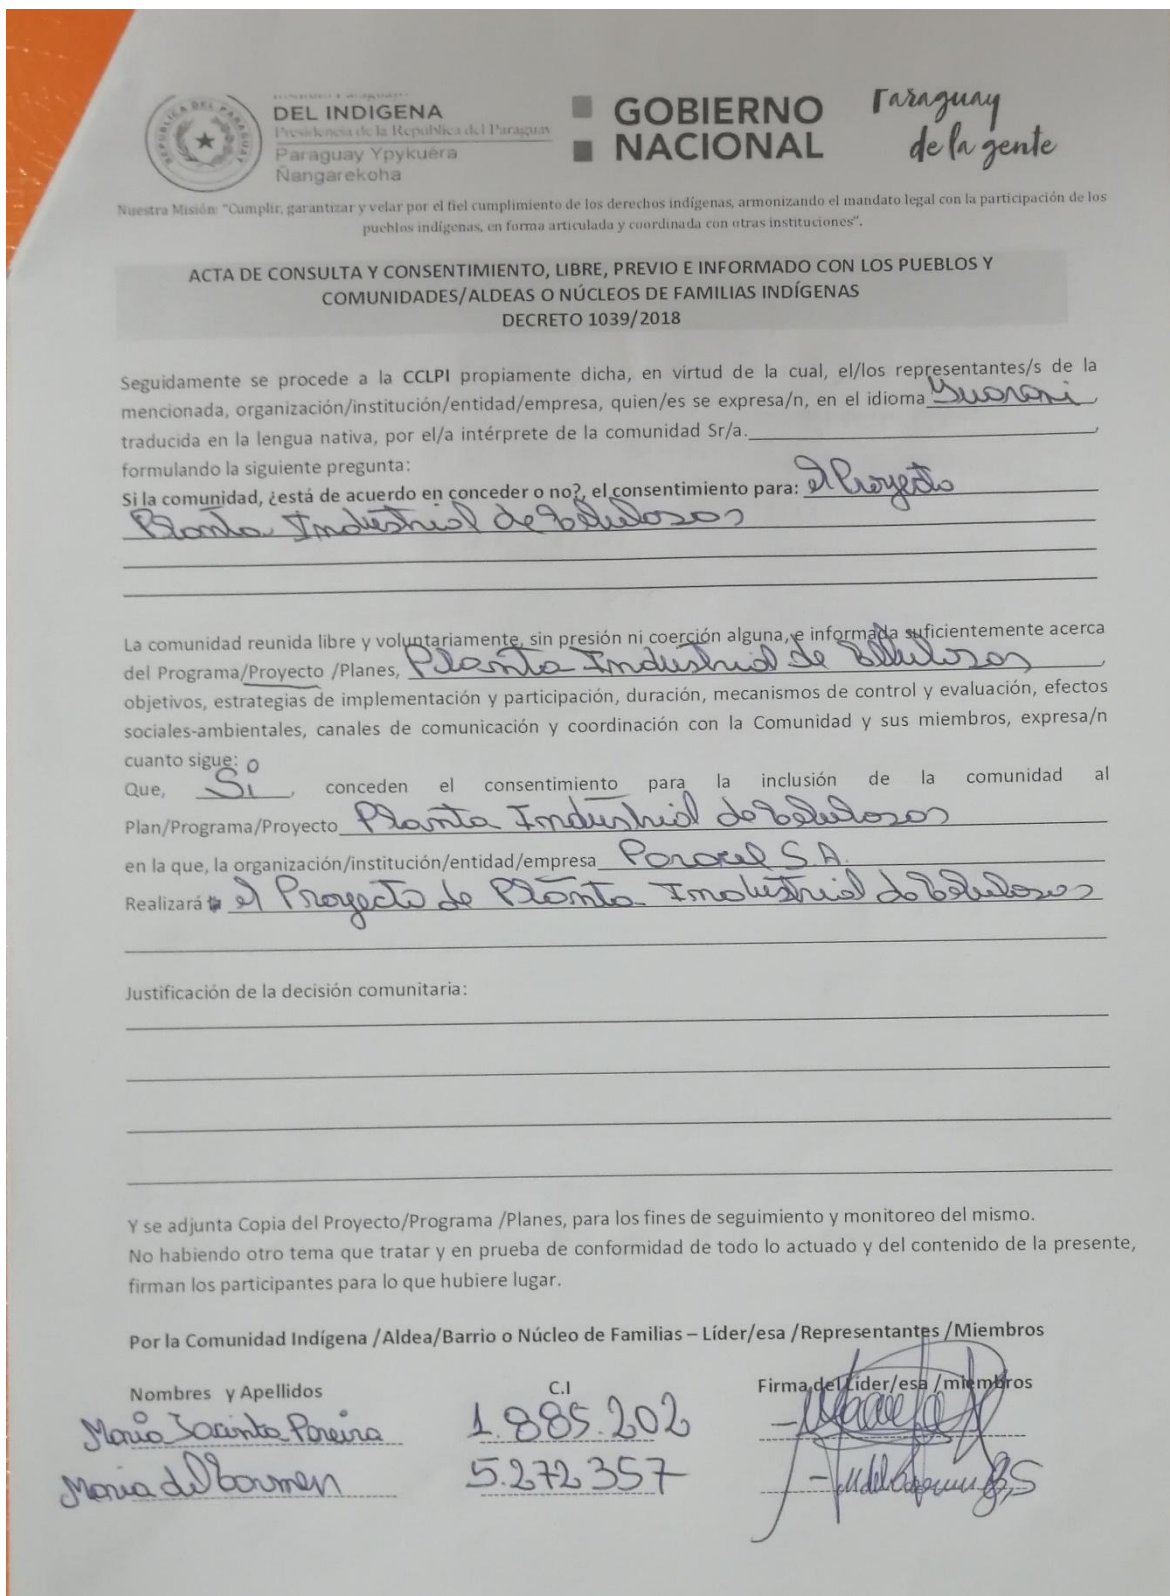 REPUBLICA DEL PARAGUAY
DEL INDIGENA
Presidencia de la República del Paraguay
Paraguay Ypykuéra
Ñangarekoha
GOBIERNO
NACIONAL
Paraguay
de la gente
Nuestra Misión: "Cumplir, garantizar y velar por el fiel cumplimiento de los derechos indígenas, armonizando el mandato legal con la participación de los
pueblos indígenas, en forma articulada y coordinada con otras instituciones".
ACTA DE CONSULTA Y CONSENTIMIENTO, LIBRE, PREVIO E INFORMADO CON LOS PUEBLOS Y
COMUNIDADES/ALDEAS O NÚCLEOS DE FAMILIAS INDÍGENAS
DECRETO 1039/2018
Seguidamente se procede a la CCLPI propiamente dicha, en virtud de la cual, el/los representantes/s de la
mencionada, organización/institución/entidad/empresa, quien/es se expresa/n, en el idioma Guarani,
traducida en la lengua nativa, por el/a intérprete de la comunidad Sr/a. ,
formulando la siguiente pregunta:
Si la comunidad, ¿está de acuerdo en conceder o no?, el consentimiento para: el Proyecto
Planta Industrial de Celulosas
La comunidad reunida libre y voluntariamente, sin presión ni coerción alguna, e informada suficientemente acerca
del Programa/Proyecto /Planes, Planta Industrial de Celulosas,
objetivos, estrategias de implementación y participación, duración, mecanismos de control y evaluación, efectos
sociales-ambientales, canales de comunicación y coordinación con la Comunidad y sus miembros, expresa/n
cuanto sigue:
Que, Si, conceden el consentimiento para la inclusión de la comunidad al
Plan/Programa/Proyecto Planta Industrial de Celulosas
en la que, la organización/institución/entidad/empresa Paracel S.A.
Realizará el Proyecto de Planta Industrial de Celulosas
Justificación de la decisión comunitaria:
Y se adjunta Copia del Proyecto/Programa /Planes, para los fines de seguimiento y monitoreo del mismo.
No habiendo otro tema que tratar y en prueba de conformidad de todo lo actuado y del contenido de la presente,
firman los participantes para lo que hubiere lugar.
Por la Comunidad Indígena /Aldea/Barrio o Núcleo de Familias – Líder/esa /Representantes /Miembros
Nombres y Apellidos C.I Firma del Líder/esa /miembros
Maria Jacinta Pereira 1.885.202
Maria del Carmen 5.272357